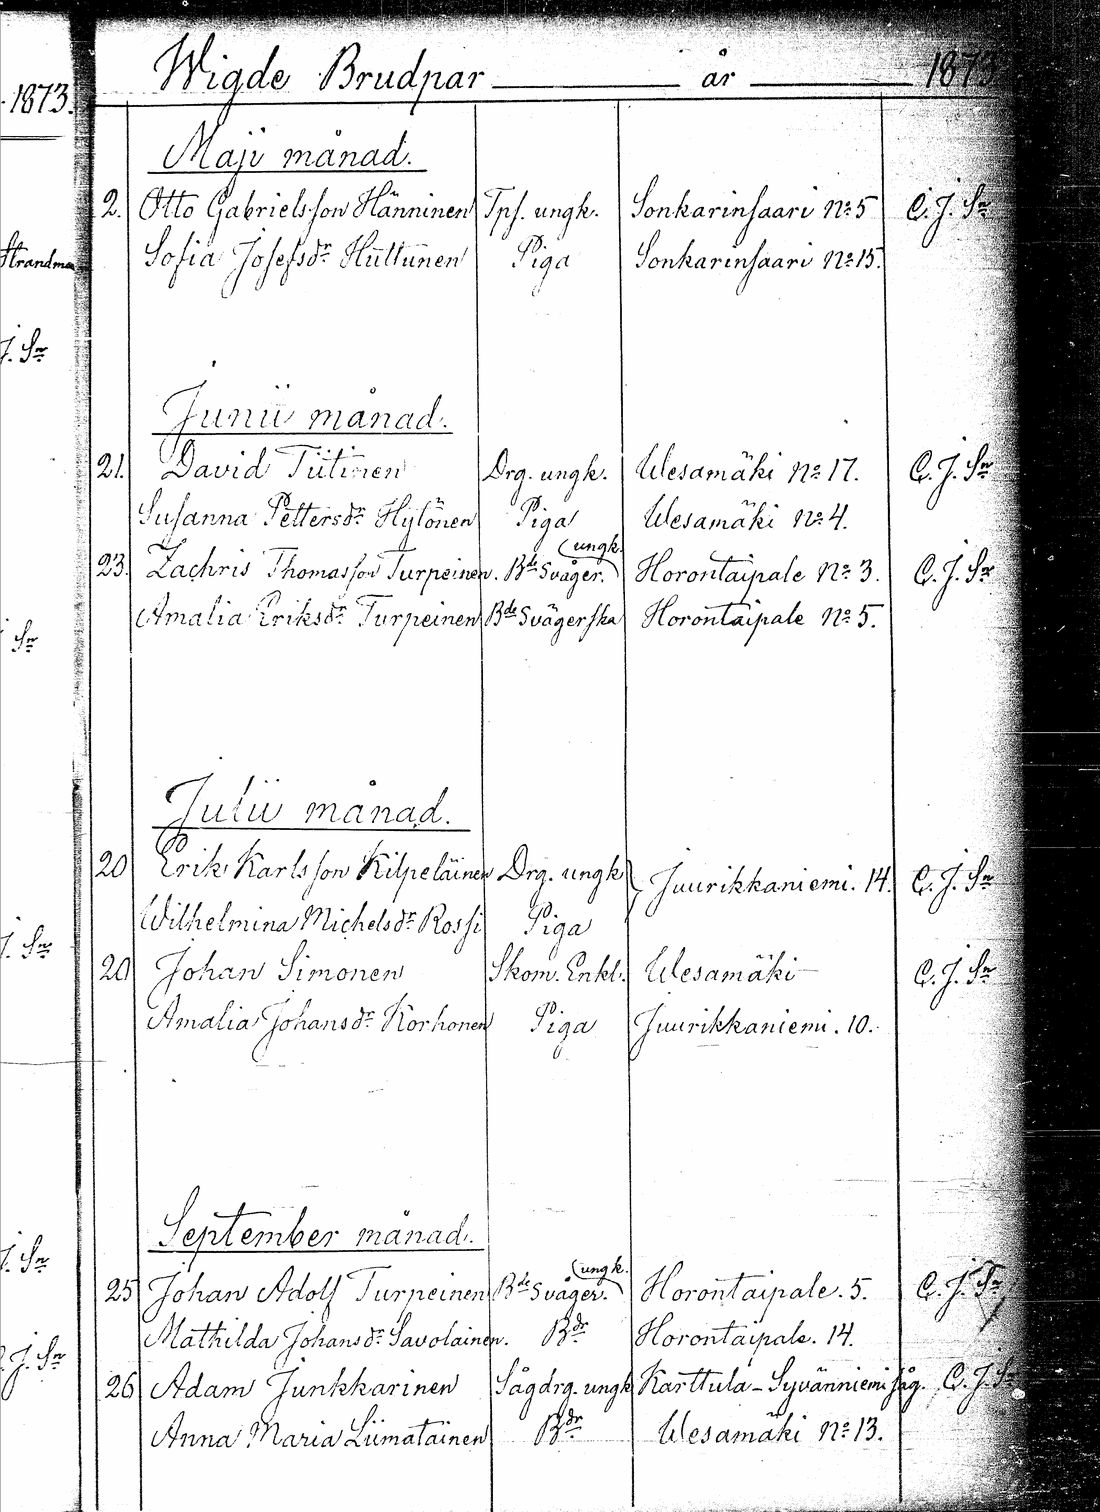 1873.
Wigde Brudpar år 1873
Maji månad.
2. Otto Gabrielsson Hänninen Tps. ungk. Sonkarinsaari No 5 C. J. Sn
Strandman
Sofia Josefsdr Huttunen Piga Sonkarinsaari No 15.
J. Sn
Junii månad.
21. David Tiitinen Drg. ungk. Wesamäki No 17. C. J. Sn
Susanna Pettersdr Hylönen Piga Wesamäki No 4.
23. Zachris Thomasson Turpeinen. Bde Svåger. (ungk. Horontaipale No 3. C. J. Sn
Amalia Eriksdr Turpeinen Bde Svägerska Horontaipale No 5.
Sn
Julii månad.
20 Erik Karlsson Kilpeläinen Drg. ungk Juurikkaniemi. 14. C. J. Sn
Wilhelmina Michelsdr Rossi Piga
J. Sn
20 Johan Simonen Skom. Enkl. Wesamäki C. J. Sn
Amalia Johansdr Korhonen Piga Juurikkaniemi. 10.
September månad.
J. Sn
25 Johan Adolf Turpeinen Bde Svåger. (ungk. Horontaipale. 5. C. J. Sn
Mathilda Johansdr Savolainen. Bdr Horontaipale. 14.
J. Sn
26 Adam Junkkarinen Sågdrg. ungk Karttula - Syvänniemi såg. C. J. Sn
Anna Maria Liimatainen Bdr Wesamäki No 13.